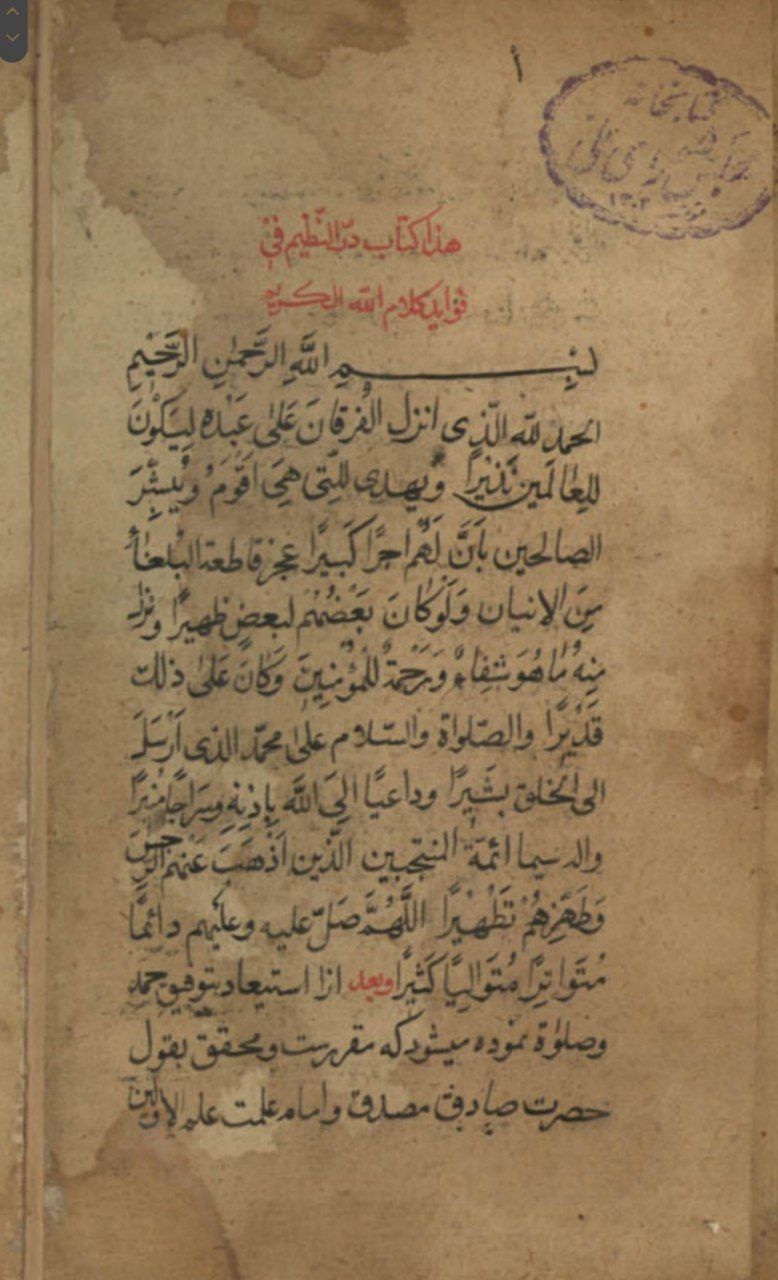 أ
كتابخانه
مجلس شورای ملی
۱۳۰۲
هذا كتاب درّ النّظيم في
فوايد كلام الله الكريم
بِسْمِ اللَّهِ الرَّحمٰنِ الرَّحيمِ
الحمد للّه الّذى انزل الفُرقانَ عَلىٰ عَبْدِهِ لِيَكُونَ
لِلعٰالَمين نَذيرًا ويهدى للّتى هِىَ اَقْوَمُ ويُبَشِّرَ
الصالحين بِاَنَّ لَهُم اجرًا كَبيرًا عجز قاطعة البُلغٰاء
مِنَ الاتيان وَلَوْ كانَ بَعْضُهُم لبعض ظهيرًا ونزل
مِنهُ مٰا هُوَ شفٰاءٌ وَرَحْمَةٌ للمُؤمِنينَ وَكانَ عَلىٰ ذلك
قَديرًا والصّلواة والسّلام على محمّد الذى اَرْسَلَهُ
الى الخلق بَشيرًا وداعيًا اِلىَ اللَّه بِاِذنِهِ وسِرَاجًا مُنيرًا
واله سيما ائمّة المنتجبين الّذين اَذْهَبَ عَنهم الرّجسَ
وَطَهَّرَهُمْ تَطْهيرًا اللَّهُمَّ صَلّ عليه وعليهم دائمًا
مُتَواتِرًا مُتَوَاليًا كَثيرًا وبعد ازا استيعاد بتوفيق حمد
وصلوٰة نموده ميشود كه مقررست ومحقّق بقول
حضرت صادق مصدق وامام علمت علم الاوّلين